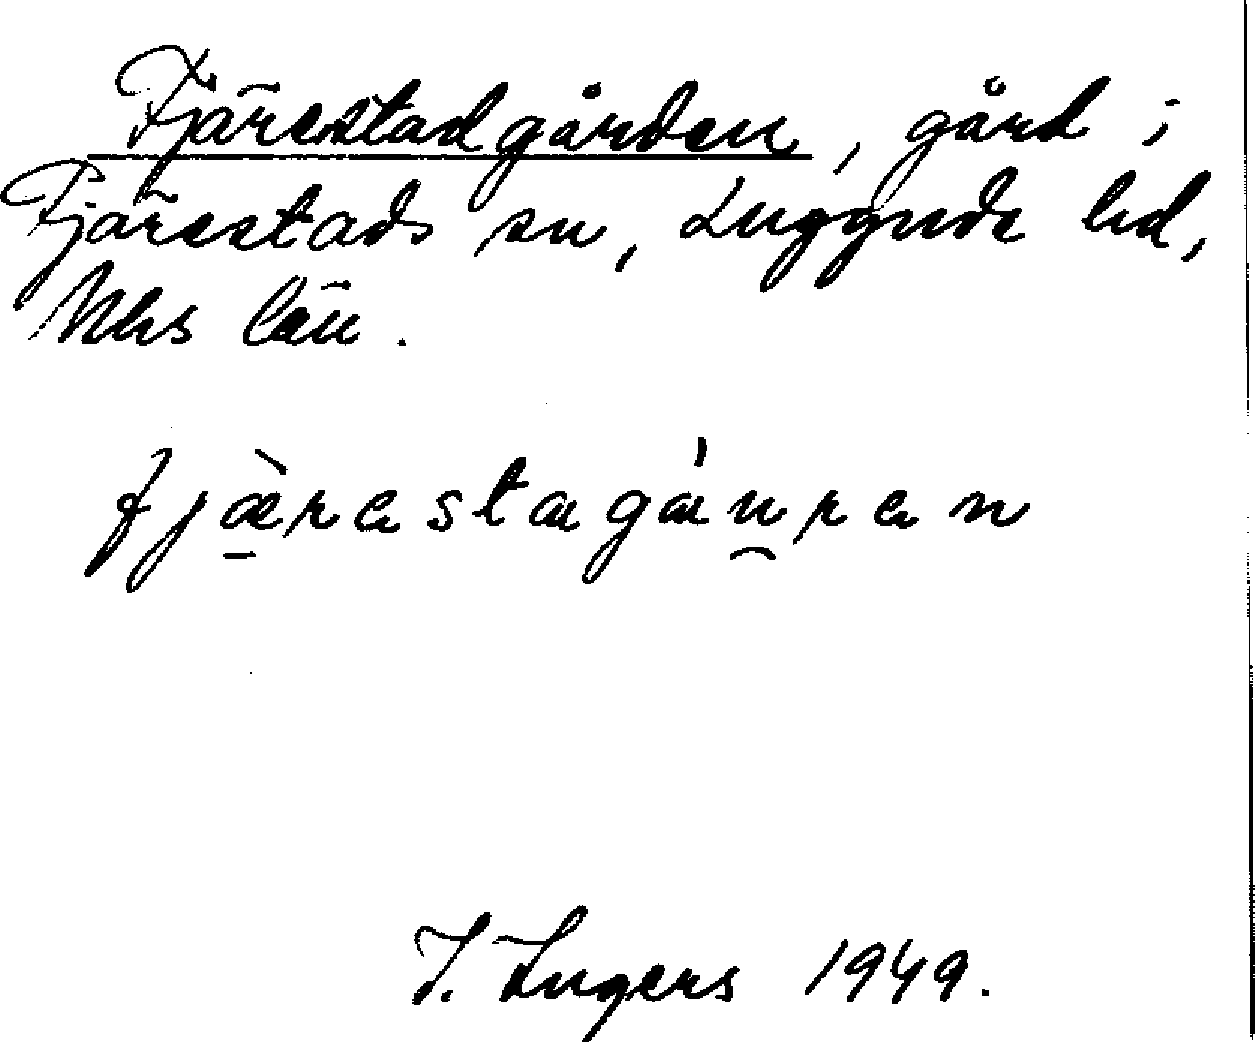 Fjärestadgården, gård i
Fjärestads sn, Luggude hd,
Mhs län.
fjæ̀restagáu̯ren
I. Ingers 1949.